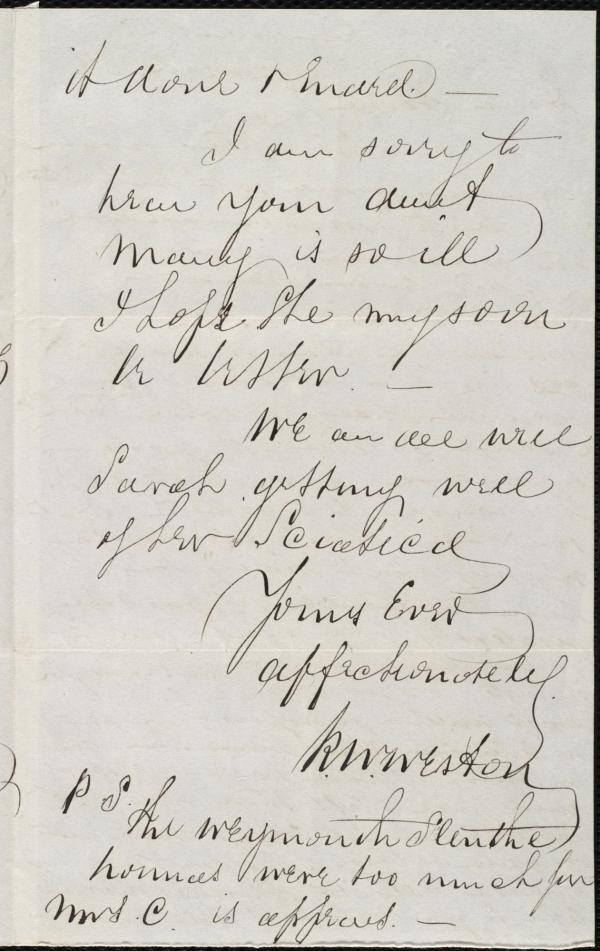 it done & 
I am sorry to
hear your aunt
Mary is so ill
I hope She may soon
be better. —
We are all well
Sarah getting well
of her Sciatica
Yours Ever
affectionately
R. W. Weston
P S. The Weymouth Sleuthe
hounds were too much for
Mrs. C. is appears. —